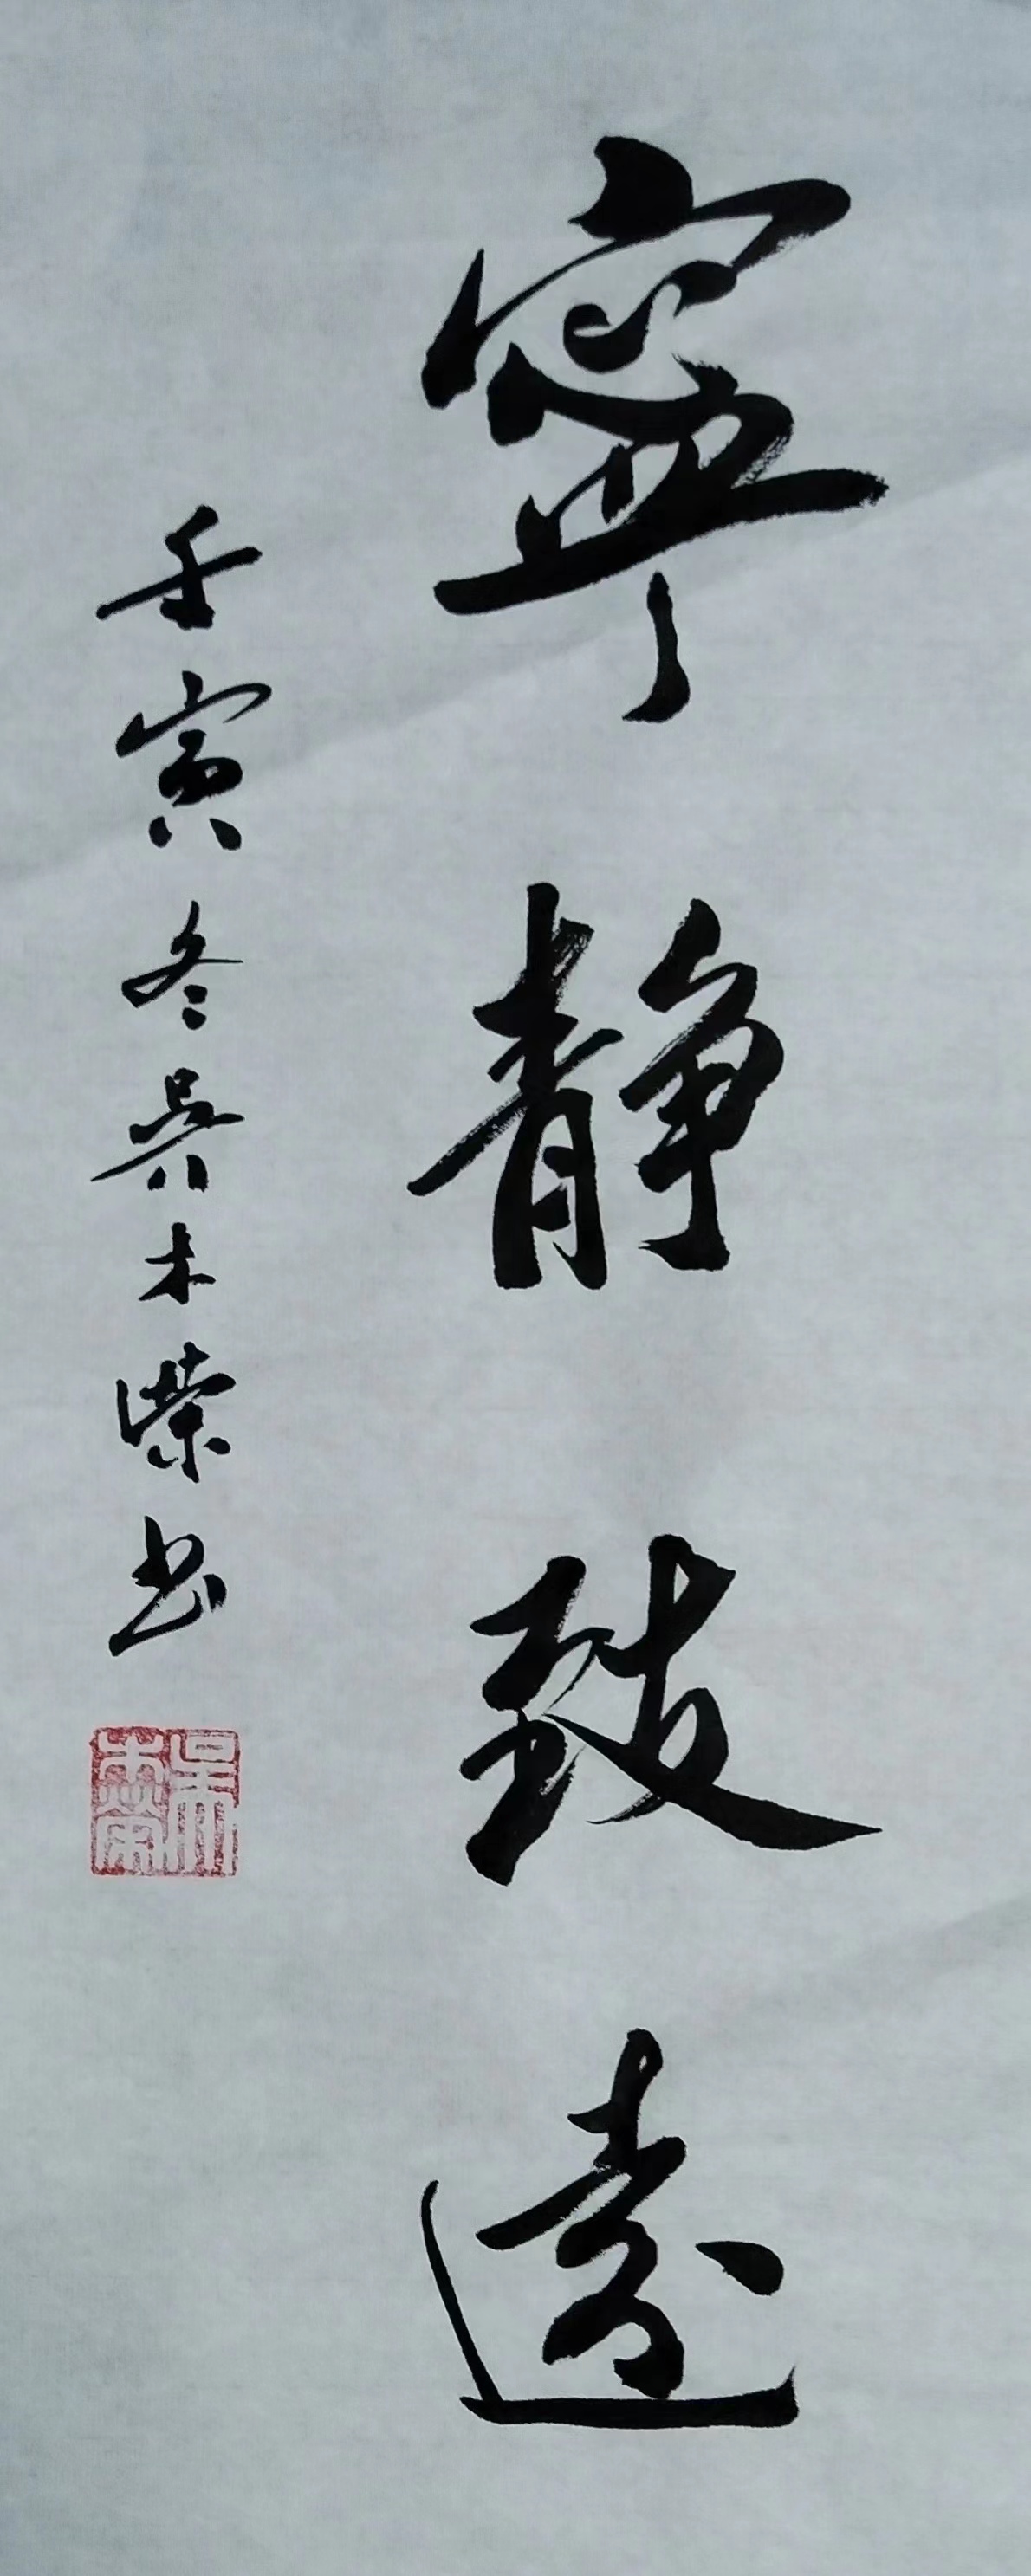 寧靜致遠
壬寅冬吳木榮書
吳木榮